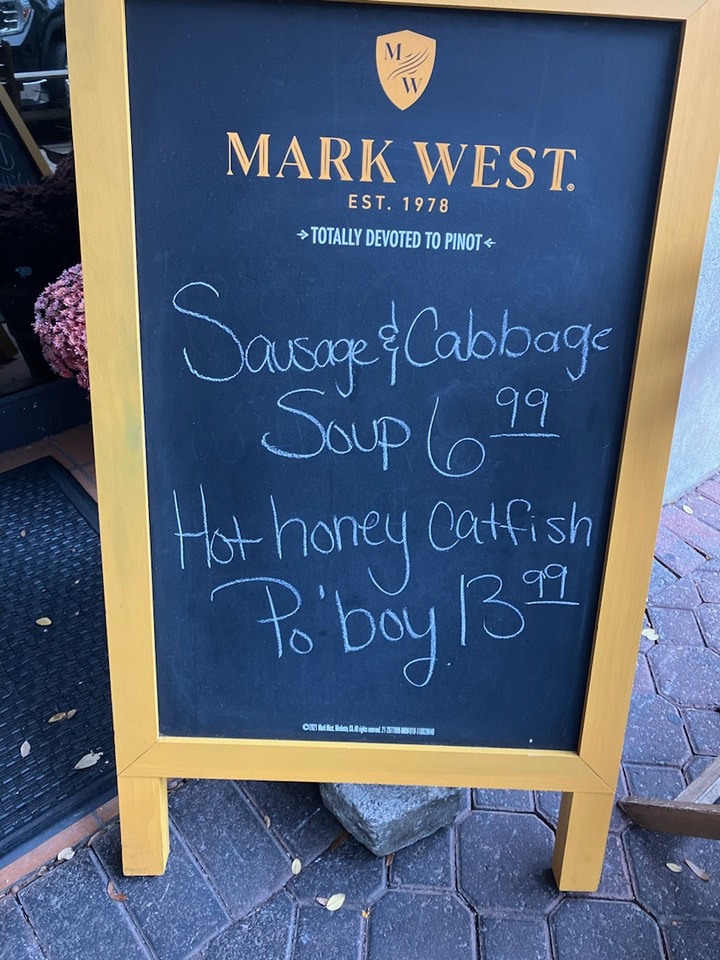 M
W
MARK WEST®
EST. 1978
TOTALLY DEVOTED TO PINOT
Sausage & Cabbage
Soup 6 99
Hot honey Catfish
Po'boy 13 99